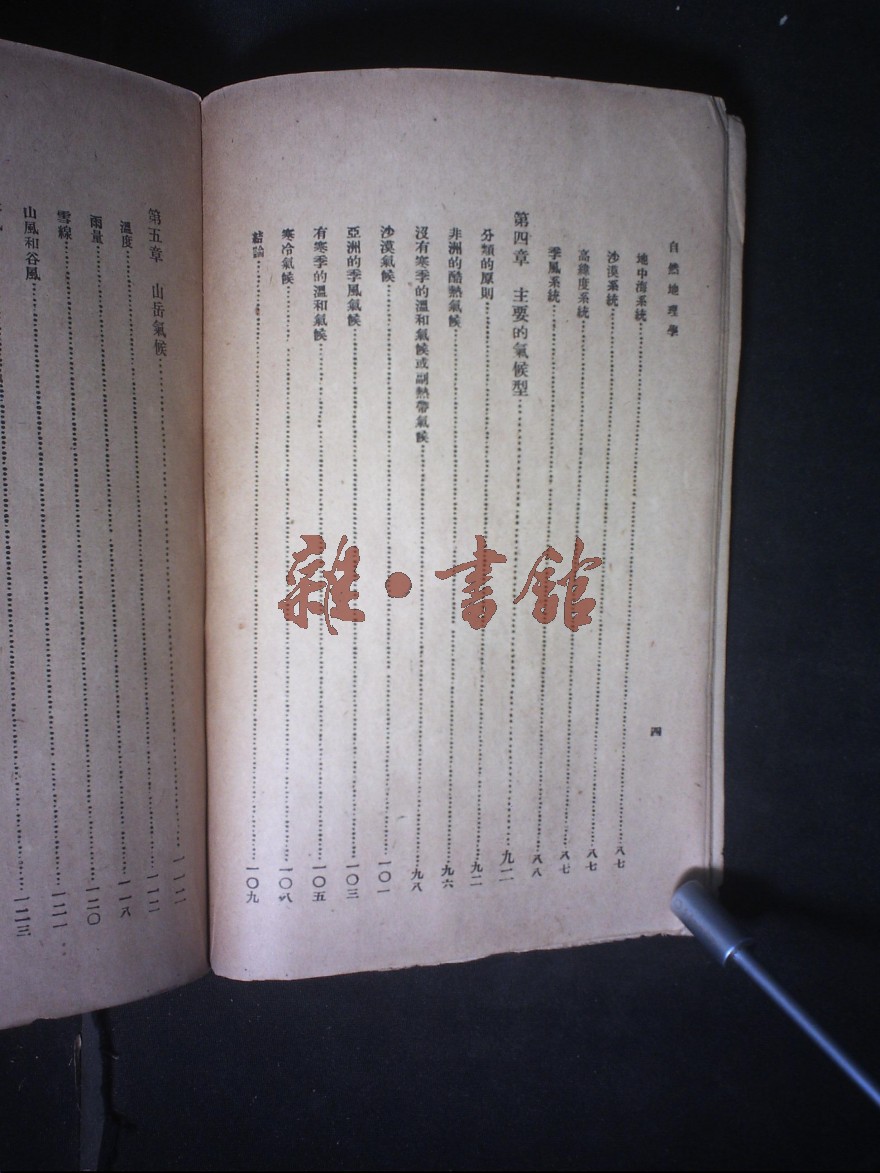 自然地理學
四
地中海系統……八七
沙漠系統……八七
高緯度系統……八七
季風系統……八八
第四章 主要的氣候型……九二
分類的原則……九二
非洲的酷熱氣候……九六
沒有寒季的溫和氣候或副熱帶氣候……九八
沙漠氣候……一〇一
亞洲的季風氣候……一〇三
有寒季的溫和氣候……一〇五
寒冷氣候……一〇八
結論……一〇九
第五章 山岳氣候……一一二
溫度……一一二
雨量……一一八
雪線……一二〇
山風和谷風……一二一
一二三
雜·書館